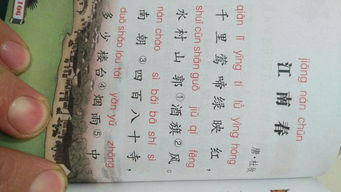 jiāng nán chūn
江南春
唐·杜牧
qiān lǐ yīng tí lǜ yìng hóng
千里莺啼绿映红，
shuǐ cūn shān guō jiǔ qí fēng
水村山郭①酒旗②风。
nán cháo sì bǎi bā shí sì
南朝③四百八十寺，
duō shǎo lóu tái yān yǔ zhōng
多少楼台④烟雨⑤中